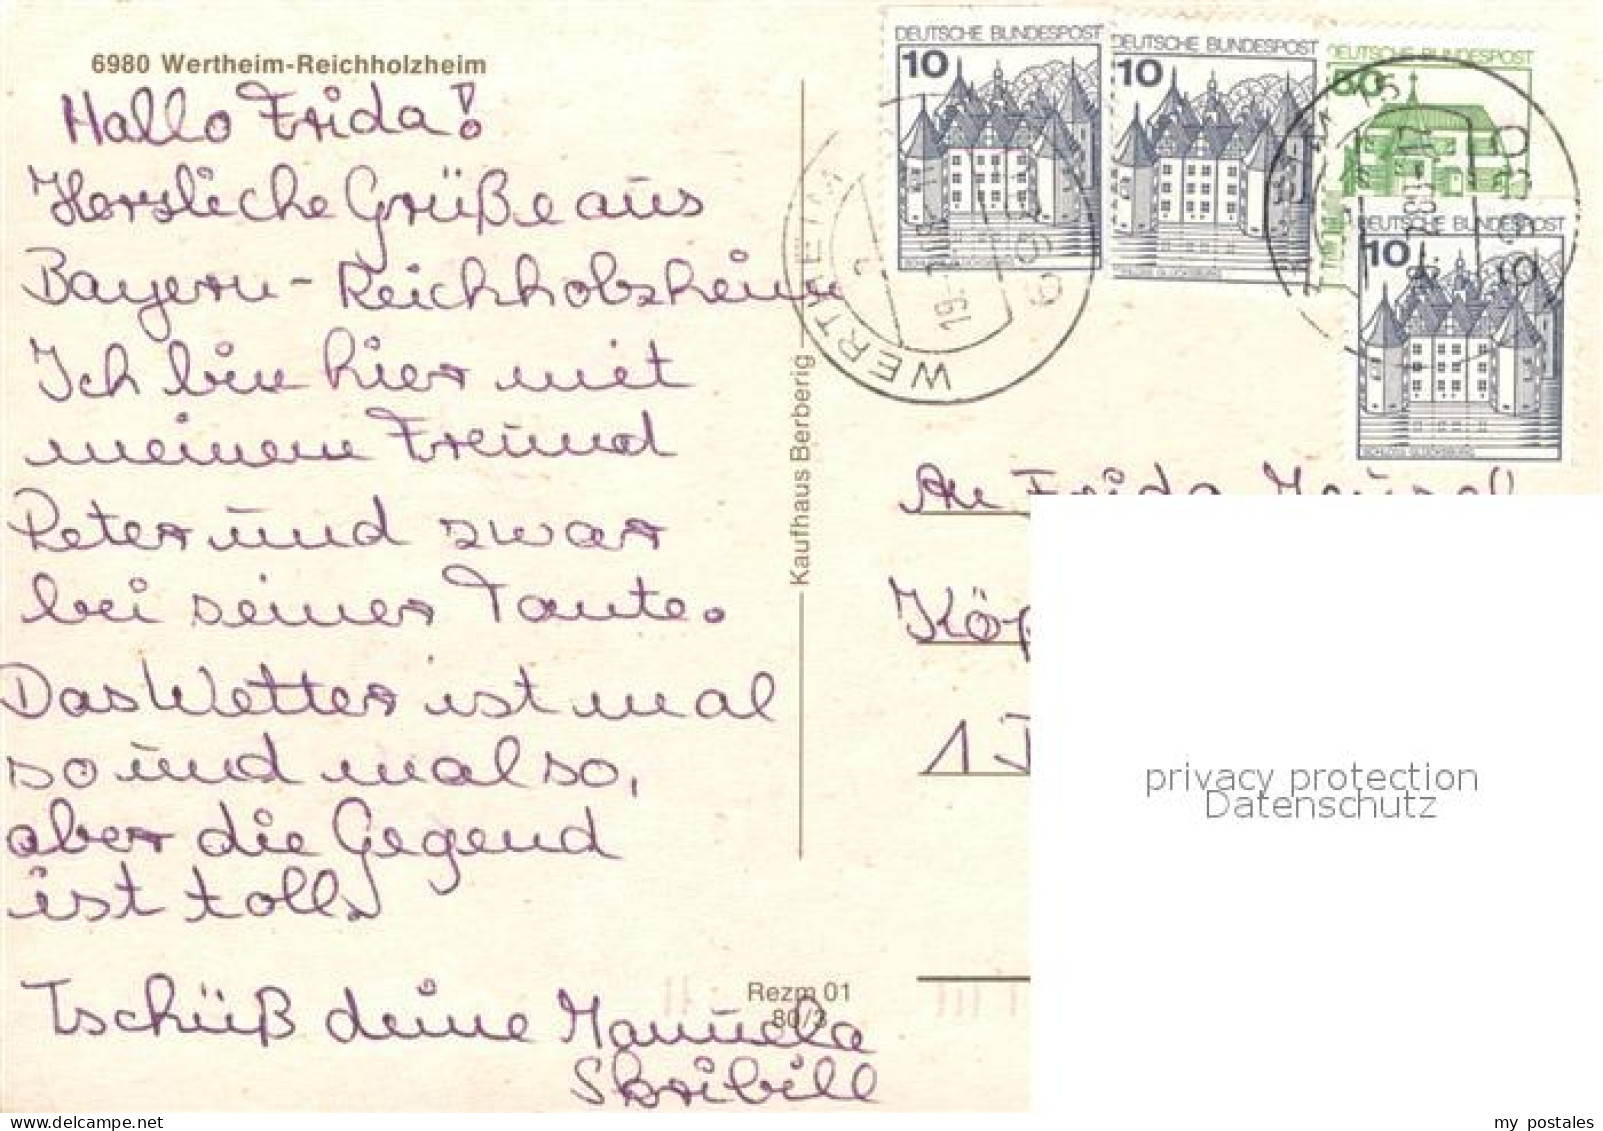 6980 Wertheim-Reichholzheim
Hallo Frida!
Herzliche Grüße aus
Bayern-Reichholzheim
Ich bin hier mit
meinem Freund
Peter und zwar
bei seiner Tante.
Das Wetter ist mal
so und mal so,
aber die Gegend
ist toll.
Tschüß deine Manuela
Skribill
Kaufhaus Berberig
Rezm 01
80/3
DEUTSCHE BUNDESPOST
10
SCHLOSS GLÜCKSBURG
DEUTSCHE BUNDESPOST
10
SCHLOSS GLÜCKSBURG
DEUTSCHE BUNDESPOST
DEUTSCHE BUNDESPOST
10
SCHLOSS GLÜCKSBURG
WERTHEIM
An Frida
privacy protection
Datenschutz
my postales